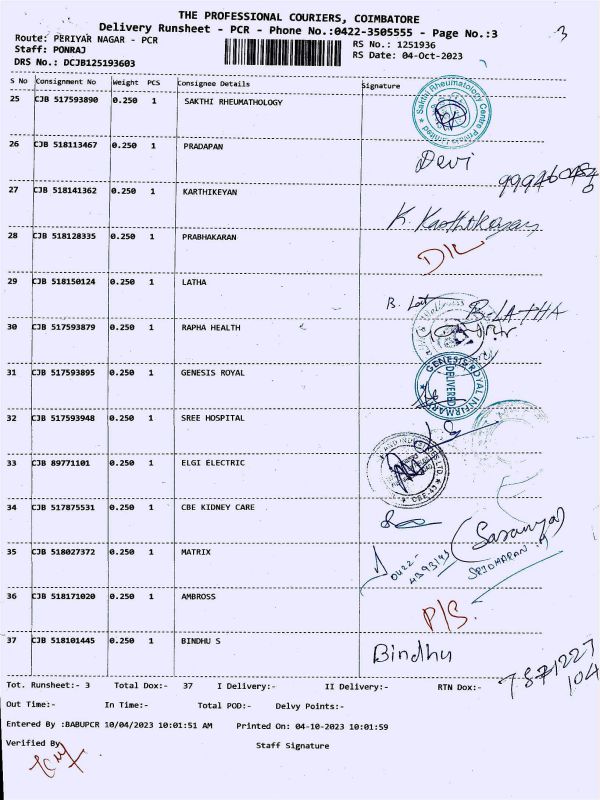 THE PROFESSIONAL COURIERS, COIMBATORE
Delivery Runsheet - PCR - Phone No.:0422-3505555 - Page No.:3
3
Route: PERIYAR NAGAR - PCR RS No.: 1251936
Staff: PONRAJ RS Date: 04-Oct-2023
DRS No.: DCJB125193603
S No Consignment No Weight PCS Consignee Details Signature
25 CJB 517593890 0.250 1 SAKTHI RHEUMATHOLOGY
Sakthi Rheumatology Centre Private Limited
26 CJB 518113467 0.250 1 PRADAPAN Devi
27 CJB 518141362 0.250 1 KARTHIKEYAN K. Karthikeyan
28 CJB 518128335 0.250 1 PRABHAKARAN D/L
29 CJB 518150124 0.250 1 LATHA B. LATHA
30 CJB 517593879 0.250 1 RAPHA HEALTH
31 CJB 517593895 0.250 1 GENESIS ROYAL GENESIS ROYAL INFIRMARY DELIVERED
32 CJB 517593948 0.250 1 SREE HOSPITAL
33 CJB 89771101 0.250 1 ELGI ELECTRIC AND INDUSTRIES LTD. CBE-43
34 CJB 517875531 0.250 1 CBE KIDNEY CARE (Saranya)
35 CJB 518027372 0.250 1 MATRIX 0422- SRIDHARAN
36 CJB 518171020 0.250 1 AMBROSS P/S.
37 CJB 518101445 0.250 1 BINDHU S Bindhu
7871227
104
Tot. Runsheet:- 3 Total Dox:- 37 I Delivery:- II Delivery:- RTN Dox:-
Out Time:- In Time:- Total POD:- Delvy Points:-
Entered By :BABUPCR 10/04/2023 10:01:51 AM Printed On: 04-10-2023 10:01:59
Verified By Staff Signature